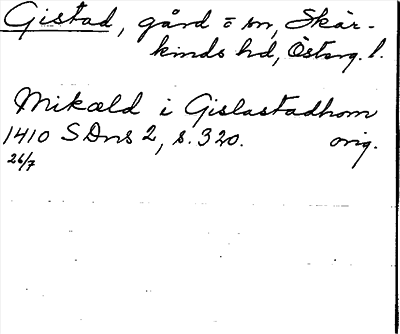 Gistad, gård o sn, Skär-
kinds hd, Österg. l.
Mikæld i Gislastadhom
1410 SDns 2, s. 320. orig.
26/7